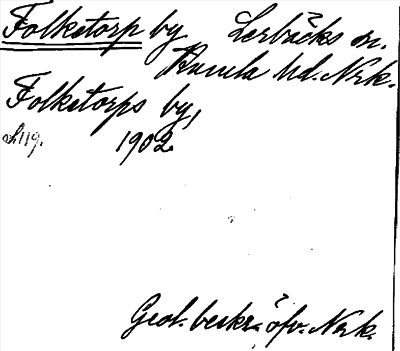 Folketorp by Lerbäcks sn.
Kumla hd. Nrk.
Folketorps by,
S. 119. 1902
Geol. beskr. öfv. Nrk.